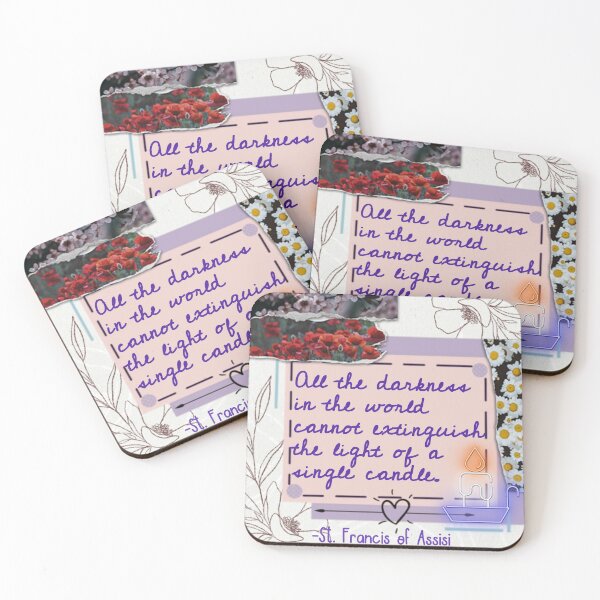 All the darkness
in the world
cannot extinguish
a
All the darkness
in the world
cannot extinguish
the light of a
single candle.
All the darkness
in the world
cannot extinguish
the light of a
single candle.
-St. Franci
All the darkness
in the world
cannot extinguish
the light of a
single candle.
-St. Francis of Assisi